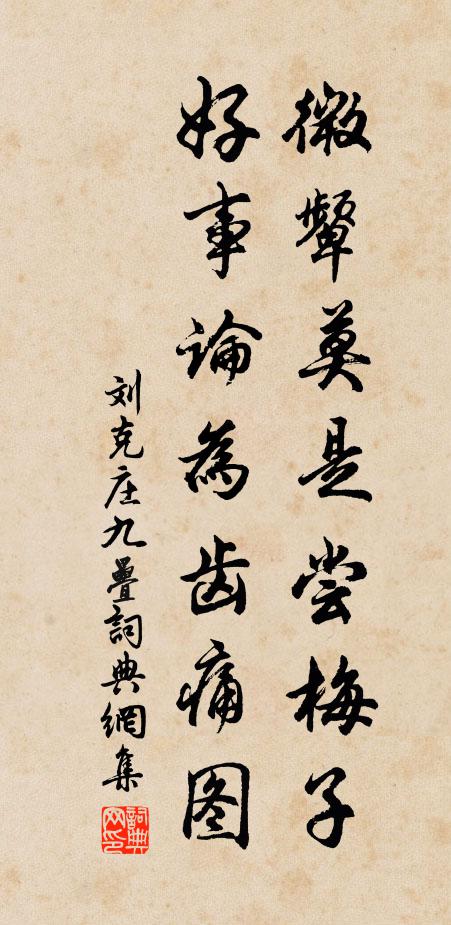 微颦莫是尝梅子
好事論為齿痛图
刘克庄九疊詞典網集
詞典网印